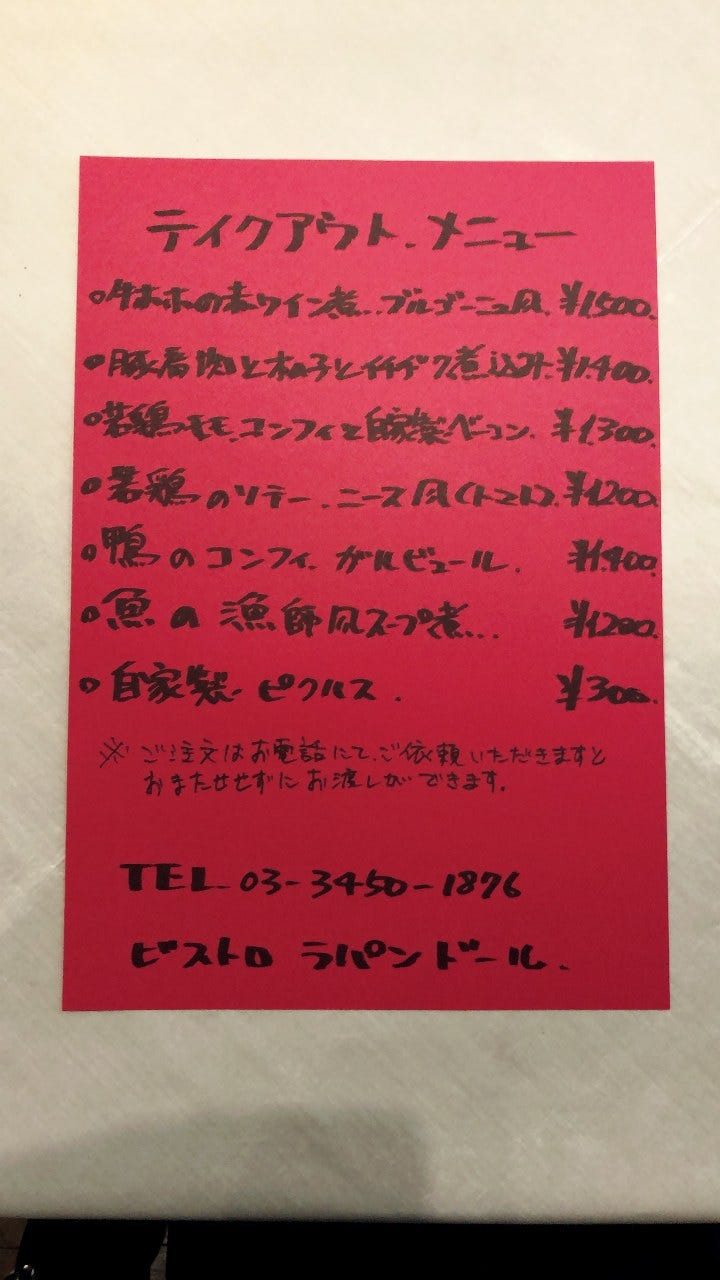 テイクアウト.メニュー
○牛ホホの赤ワイン煮...ブルゴーニュ風. ¥1,500.
○豚肩肉と柚子とイチヂク煮込み. ¥1,400.
○若鶏モモ.コンフィと自家製ベーコン. ¥1,300.
○若鶏のソテー.ニース風(トマト). ¥1,200.
○鴨のコンフィ.ガルビュール. ¥1,400.
○魚の漁師風スープ煮... ¥1,200.
○自家製ピクルス. ¥300.
※ご注文はお電話にて、ご依頼いただきますと
おまたせせずにお渡しができます。
TEL 03-3450-1876
ビストロ ラパンドール.